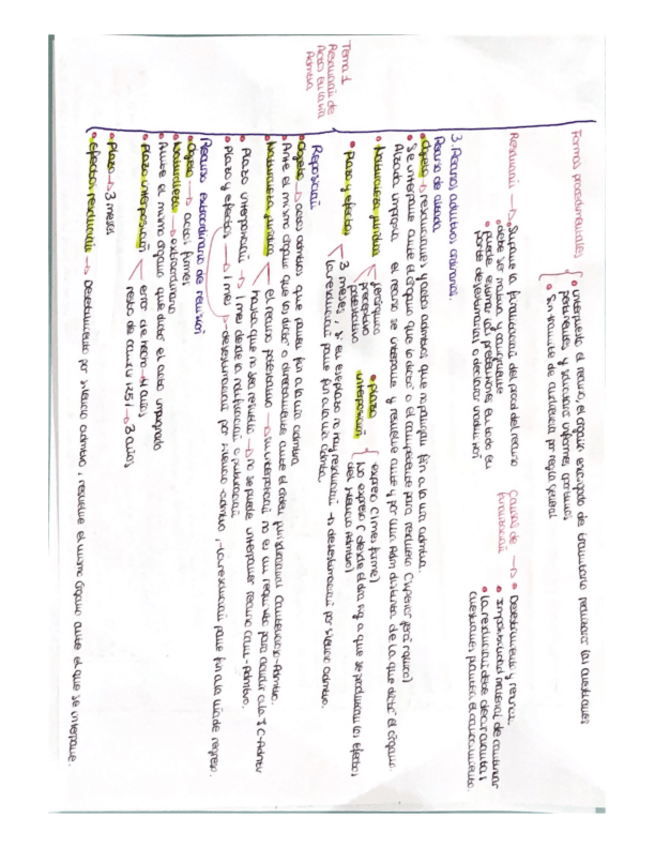 Formas procedimentales
• interpuesto el recurso, el órgano encargado de tramitarlo realizará las cuestiones
pertinentes y solicitará informes oportunos
• Sin tramite de audiencia por regla general
Resolución → Supone la finalización del proced. del recurso
• debe ser motiva. y congruente
• puede estimar las pretensiones en todo en
parte desestimarlas o declarar inadmisión
Causas de finalización →
• Desistimiento y renuncia
• Imposibilidad material de continuar
• La resolución debe decir cuantas
cuestiones plantea el procedimiento.
Tema 1
Resolución de
Actos en la vía
Admtva
3. Recursos admtivos ordinarios.
Recurso de alzada
• Objeto → resoluciones y actos admtivos que no pongan fin a la vía admtva.
• Se interpone ante el órgano que lo dictó o el competente para resolverlo (superior jerárquico)
Alzada impropia el recurso se interpone y resuelve ante y por una Adm distinta de la que dictó el órgano.
• Naturaleza jurídica
jerárquico
preceptivo
potestativo
• plazo interposición
expreso (1 mes firme)
No expreso (desde el día sig a que se produzcan los efectos
del silencio Admtvo)
• Plazo y efectos
3 meses, si en ese plazo no hay resolución → desestimación por silencio admtvo.
La resolución pone fin a la vía admtva.
Reposición
• Objeto → actos admtvos que ponen fin a la vía admtva
• Ante el mismo órgano que los dictó o directamente ante el orden jurisdiccional Contencioso-Admtvo.
• Naturaleza jurídica
el recurso potestativo → su interposición no es un requisito para acudir a la JC-Admtv
hasta que no sea resuelto → no se puede interponer recurso cont-Admtivo.
• Plazo interposición → 1 mes desde la notificación o publicación
• Plazo y efectos → 1 mes → desestimación por silencio admtvo,
Recurso extraordinario de revisión
• Objeto → actos firmes
• Naturaleza → extraordinario
• Ante el mismo órgano que dictó el acto impugnado
• Plazo interposición
error de hecho → 4 años
resto de causas → 3
• Plazo → 3 meses
• Efectos resolución → Desestimiento por silencio admtivo, resuelve el mismo órgano ante el que se interpone.